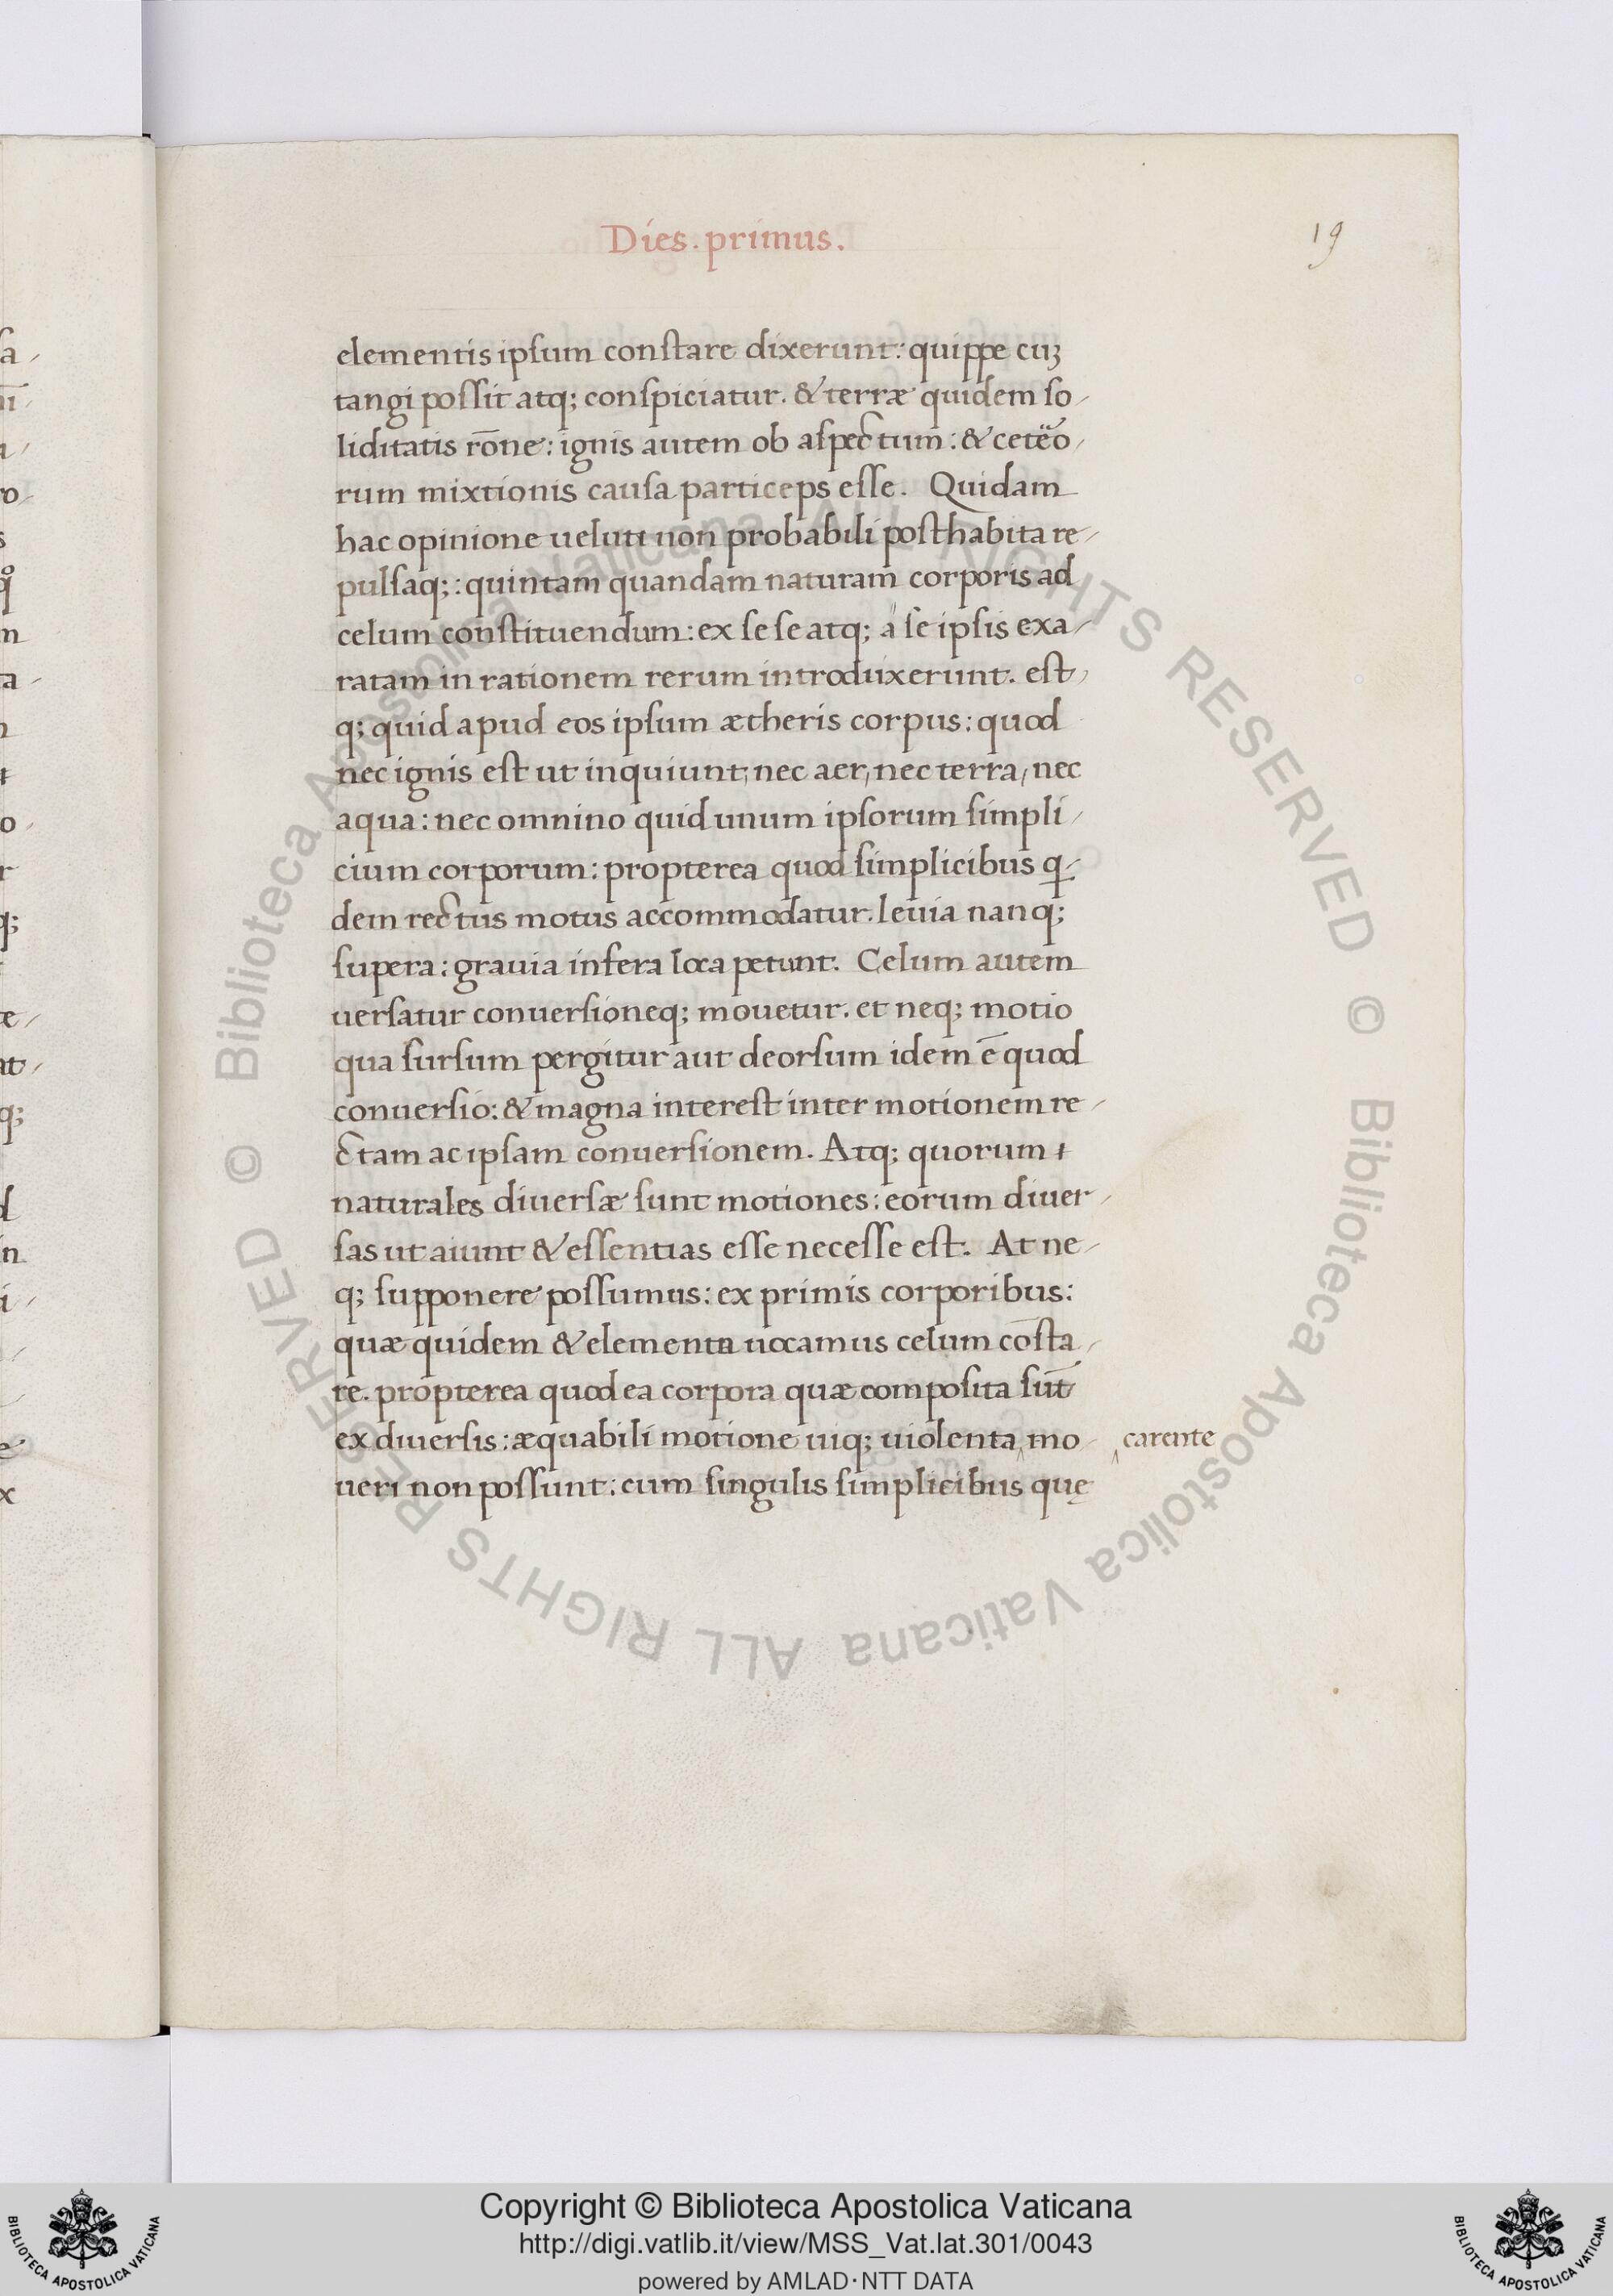 Dies. primus.
19
elementis ipſum conſtare dixerunt: quippe cuꝫ
tangi poſſit atq; conſpiciatur. & terræ quidem ſo/
liditatis rõne: ignis autem ob aſpectum: & ceteo/
rum mixtionis cauſa particeps eſſe. Quidam
hac opinione ueluti non probabili poſthabita re/
pulſaq;: quintam quandam naturam corporis ad
celum conſtituendum: ex ſe ſe atq; a ſe ipſis exa/
ratam in rationem rerum introduxerunt. eſt/
q; quid apud eos ipſum ætheris corpus: quod
nec ignis eſt ut inquiunt, nec aer, nec terra, nec
aqua: nec omnino quid unum ipſorum ſimpli/
cium corporum: propterea quod ſimplicibus q/
dem rectus motus accommodatur. leuia nanq;
ſupera: grauia infera loca petunt. Celum autem
uerſatur conuerſioneq; mouetur. et neq; motio
qua ſurſum pergitur aut deorſum idem ē quod
conuerſio: & magna intereſt inter motionem re/
ctam ac ipſam conuerſionem. Atq; quorum
naturales diuerſæ ſunt motiones: eorum diuer/
ſas ut aiunt & eſſentias eſſe neceſſe eſt. At ne/
q; ſupponere poſſumus: ex primis corporibus:
quæ quidem & elementa uocamus celum cōſta/
re. propterea quod ea corpora quæ compoſita ſūt
ex diuerſis: æquabili motione uiq; uiolenta mo/
carente
ueri non poſſunt: cum ſingulis ſimplicibus quę
© Biblioteca Apostolica Vaticana ALL RIGHTS RESERVED © Biblioteca Apostolica Vaticana ALL RIGHTS RESERVED
Copyright © Biblioteca Apostolica Vaticana
http://digi.vatlib.it/view/MSS_Vat.lat.301/0043
powered by AMLAD·NTT DATA
BIBLIOTECA APOSTOLICA VATICANA
BIBLIOTECA APOSTOLICA VATICANA